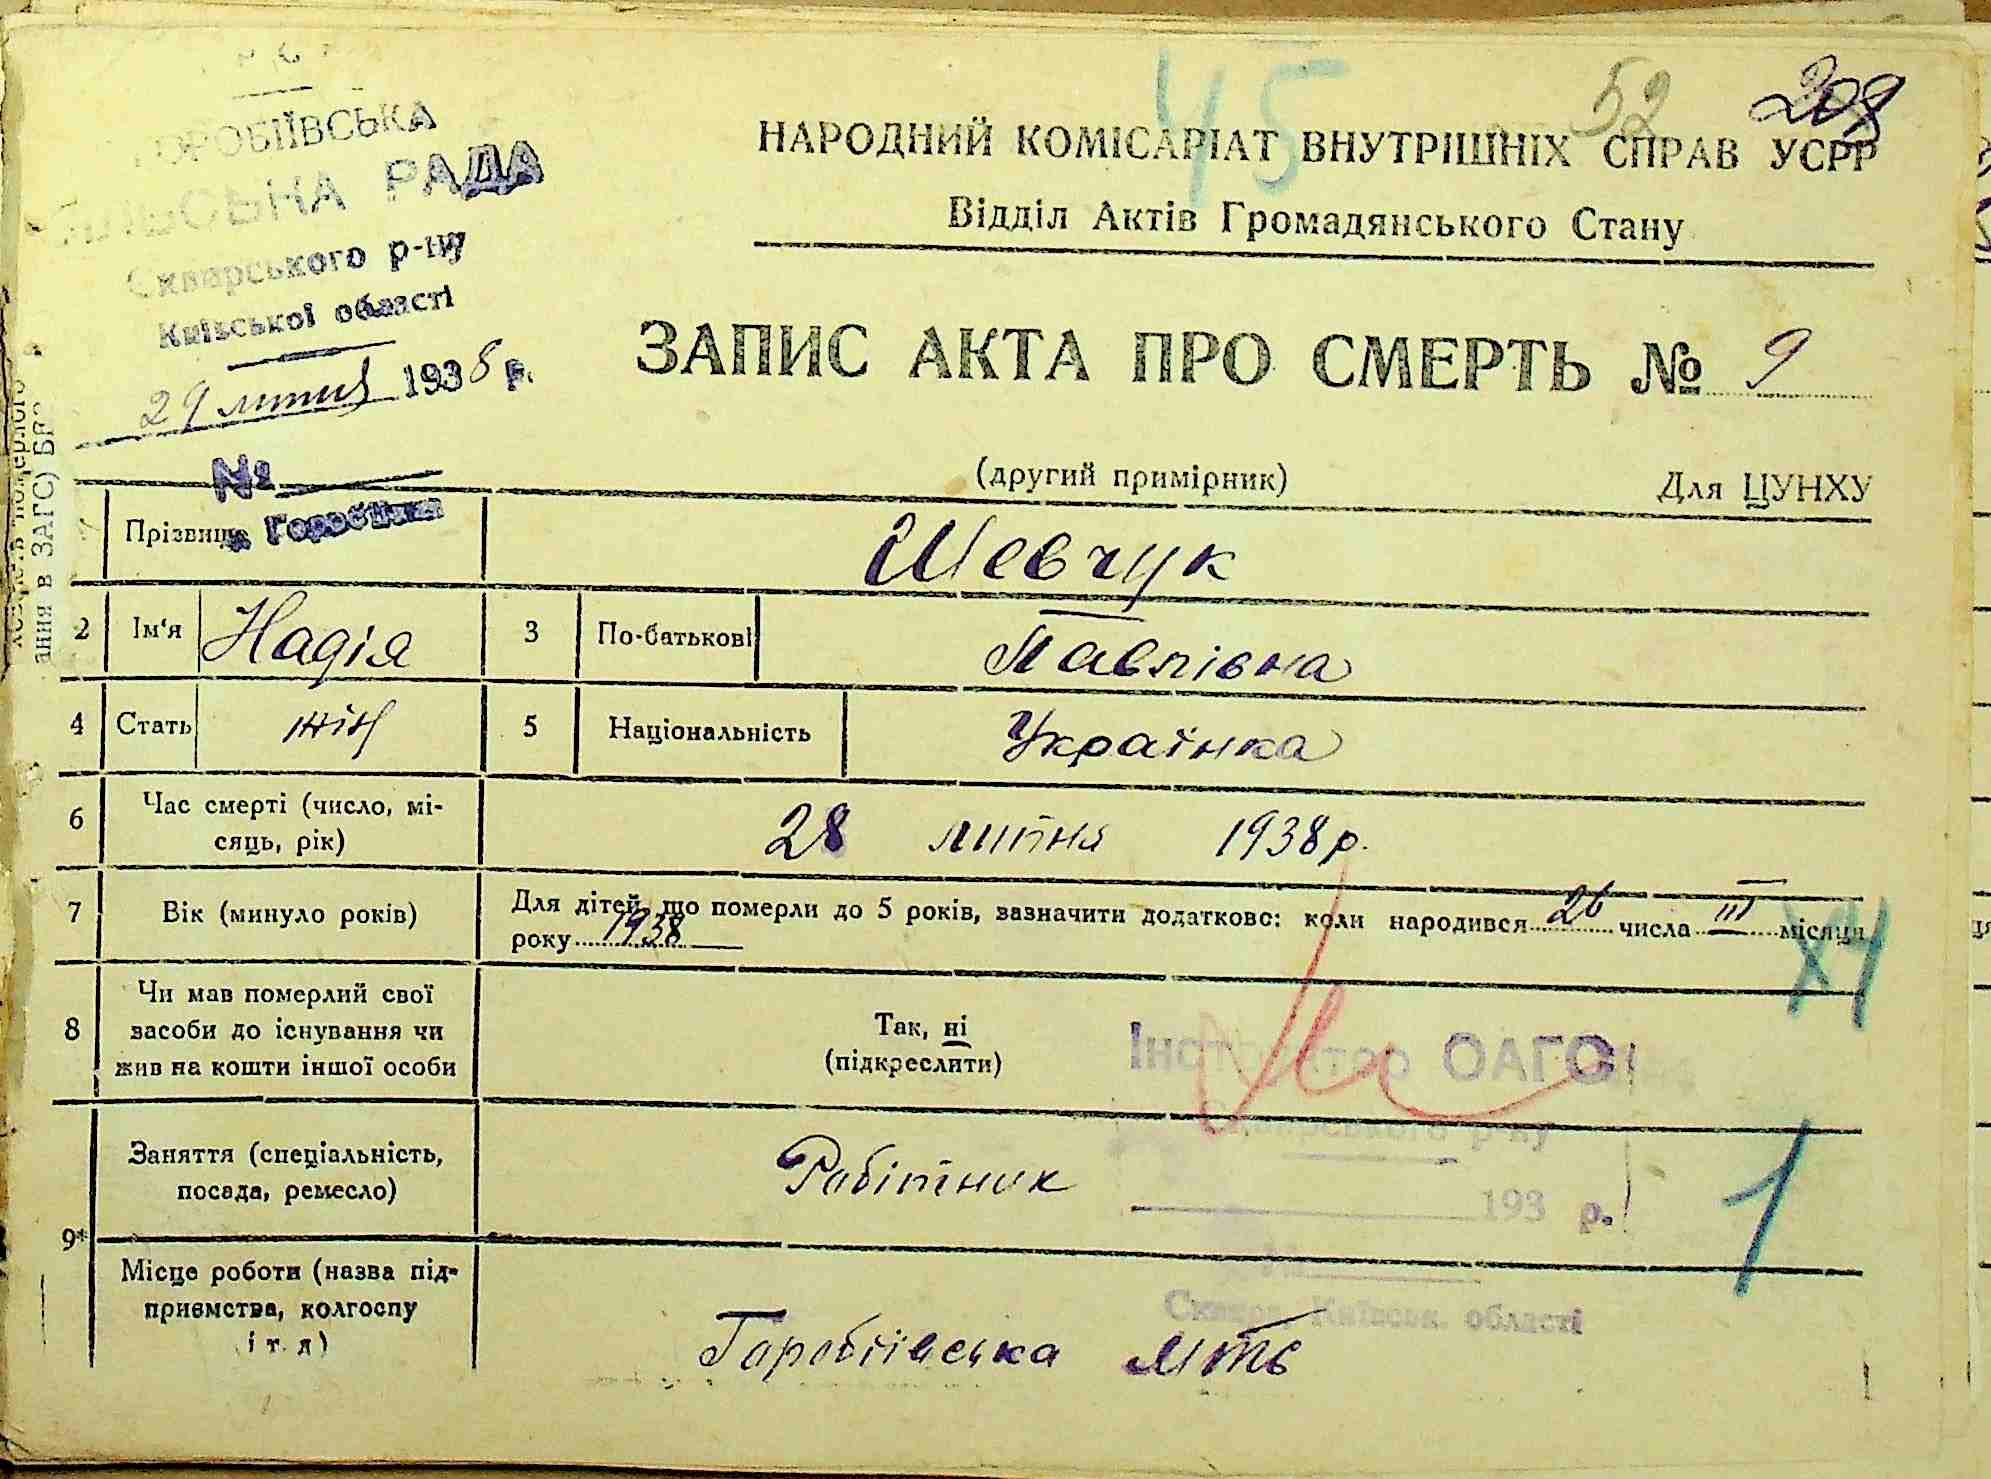 45 52
НАРОДНИЙ КОМІСАРІАТ ВНУТРІШНІХ СПРАВ УСРР
Відділ Актів Громадянського Стану
ГОРОБІЇВСЬКА
СІЛЬСЬКА РАДА
Сквирського р-ну
Київської області
29 липня 1938 р.
№
с. Горобіївка
ЗАПИС АКТА ПРО СМЕРТЬ № 9
(другий примірник) Для ЦУНХУ
ання в ЗАГС)
Прізвище Шевчук
2 Ім‘я Надія 3 По-батькові Павлівна
4 Стать жін 5 Національність Українка
6 Час смерті (число, мі-
сяць, рік) 28 липня 1938 р.
7 Вік (минуло років) Для дітей, що померли до 5 років, зазначити додатково: коли народився 26 числа III місяця
року 1938
XI
8 Чи мав померлий свої
засоби до існування чи
жив на кошти іншої особи
Так, ні
(підкреслити)
Інструктор ОАГС
Сквирського р-ну
193 р.
№
Сквира, Київськ. області
9* Заняття (спеціальність,
посада, ремесло) Робітник
1
Місце роботи (назва під-
приємства, колгоспу
і т. д) Горобіївська МТС